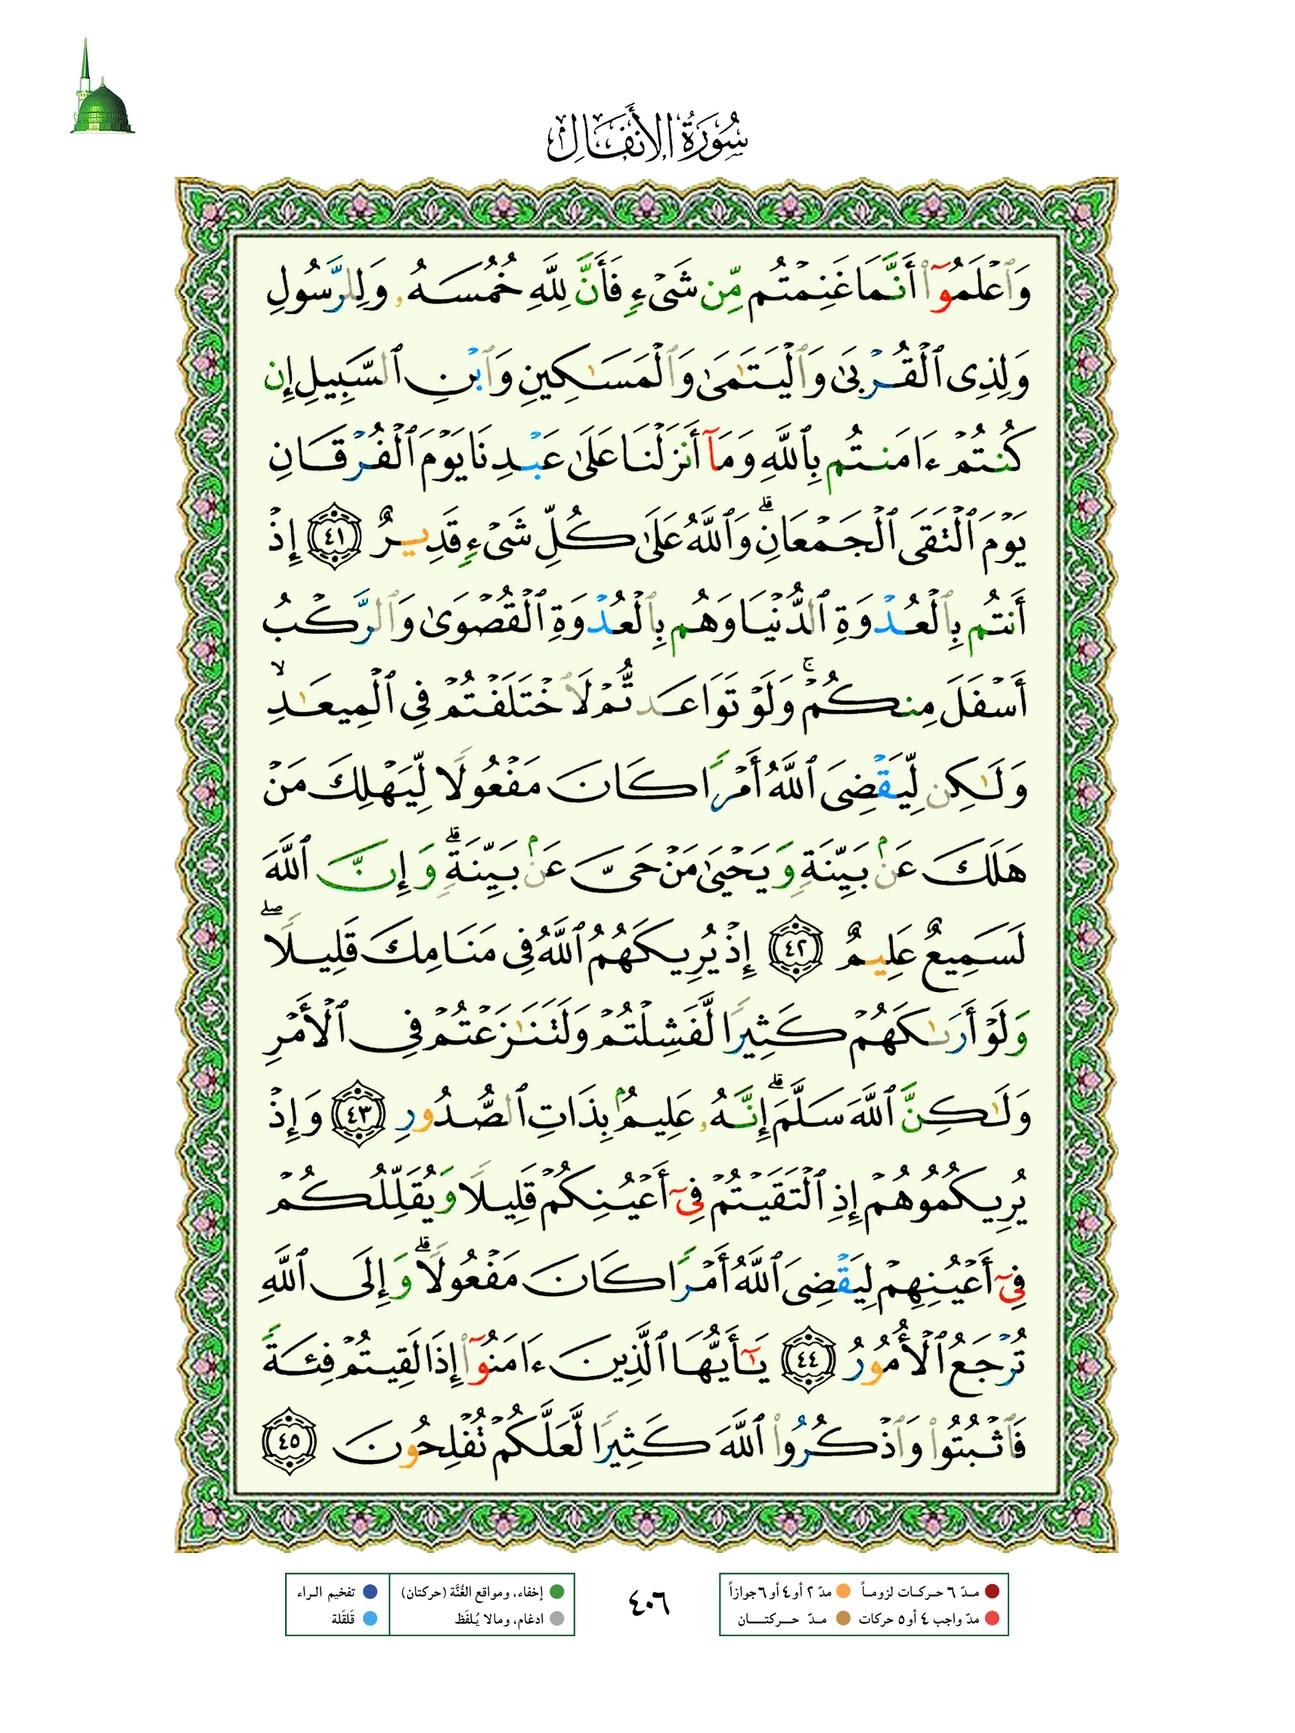 سُورَةُ الأَنفَالِ
وَٱعْلَمُوٓا۟ أَنَّمَا غَنِمْتُم مِّن شَىْءٍ فَأَنَّ لِلَّهِ خُمُسَهُۥ وَلِلرَّسُولِ
وَلِذِى ٱلْقُرْبَىٰ وَٱلْيَتَـٰمَىٰ وَٱلْمَسَـٰكِينِ وَٱبْنِ ٱلسَّبِيلِ إِن
كُنتُمْ ءَامَنتُم بِٱللَّهِ وَمَآ أَنزَلْنَا عَلَىٰ عَبْدِنَا يَوْمَ ٱلْفُرْقَانِ
يَوْمَ ٱلْتَقَى ٱلْجَمْعَانِ ۗ وَٱللَّهُ عَلَىٰ كُلِّ شَىْءٍ قَدِيرٌ ٤١ إِذْ
أَنتُم بِٱلْعُدْوَةِ ٱلدُّنْيَا وَهُم بِٱلْعُدْوَةِ ٱلْقُصْوَىٰ وَٱلرَّكْبُ
أَسْفَلَ مِنكُمْ ۚ وَلَوْ تَوَاعَدتُّمْ لَٱخْتَلَفْتُمْ فِى ٱلْمِيعَـٰدِ ۙ
وَلَـٰكِن لِّيَقْضِىَ ٱللَّهُ أَمْرًا كَانَ مَفْعُولًا لِّيَهْلِكَ مَنْ
هَلَكَ عَنۢ بَيِّنَةٍ وَيَحْيَىٰ مَنْ حَىَّ عَنۢ بَيِّنَةٍ ۗ وَإِنَّ ٱللَّهَ
لَسَمِيعٌ عَلِيمٌ ٤٢ إِذْ يُرِيكَهُمُ ٱللَّهُ فِى مَنَامِكَ قَلِيلًا ۖ
وَلَوْ أَرَىٰكَهُمْ كَثِيرًا لَّفَشِلْتُمْ وَلَتَنَـٰزَعْتُمْ فِى ٱلْأَمْرِ
وَلَـٰكِنَّ ٱللَّهَ سَلَّمَ ۗ إِنَّهُۥ عَلِيمٌۢ بِذَاتِ ٱلصُّدُورِ ٤٣ وَإِذْ
يُرِيكُمُوهُمْ إِذِ ٱلْتَقَيْتُمْ فِىٓ أَعْيُنِكُمْ قَلِيلًا وَيُقَلِّلُكُمْ
فِىٓ أَعْيُنِهِمْ لِيَقْضِىَ ٱللَّهُ أَمْرًا كَانَ مَفْعُولًا ۗ وَإِلَى ٱللَّهِ
تُرْجَعُ ٱلْأُمُورُ ٤٤ يَـٰٓأَيُّهَا ٱلَّذِينَ ءَامَنُوٓا۟ إِذَا لَقِيتُمْ فِئَةً
فَٱثْبُتُوا۟ وَٱذْكُرُوا۟ ٱللَّهَ كَثِيرًا لَّعَلَّكُمْ تُفْلِحُونَ ٤٥
مـدّ ٦ حـركـات لزومـاً مدّ ٢ أو ٤ أو ٦ جوازاً
مدّ واجب ٤ أو ٥ حركات مـدّ حـــركتــــان
٤٠٦
إخفاء، ومواقع الغُنَّة (حركتان) تفخيم الـراء
ادغام، ومالا يُـلفَظ قَلقَلة